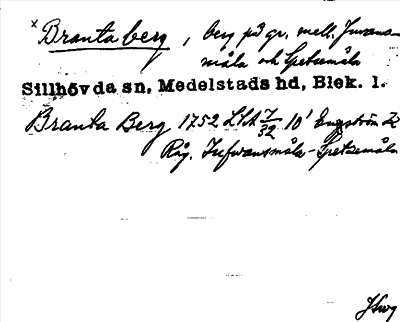 x Brantaberg, berg på gr. mell. Juvans-
måla och Spetsemåla
Sillhövda sn, Medelstads hd, Blek. l.
Branta Berg 1752 LSA 7/32 10' Engström Z
Råg. Jufvansmåla - Spetsemåla